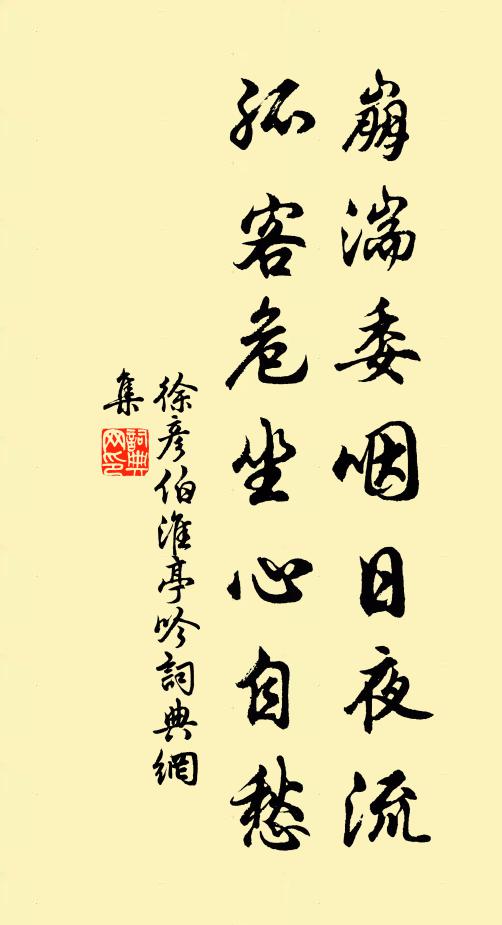 崩湍委咽日夜流
孤客危坐心自愁
徐彥伯淮亭吟詞典網
集
詞典
网印